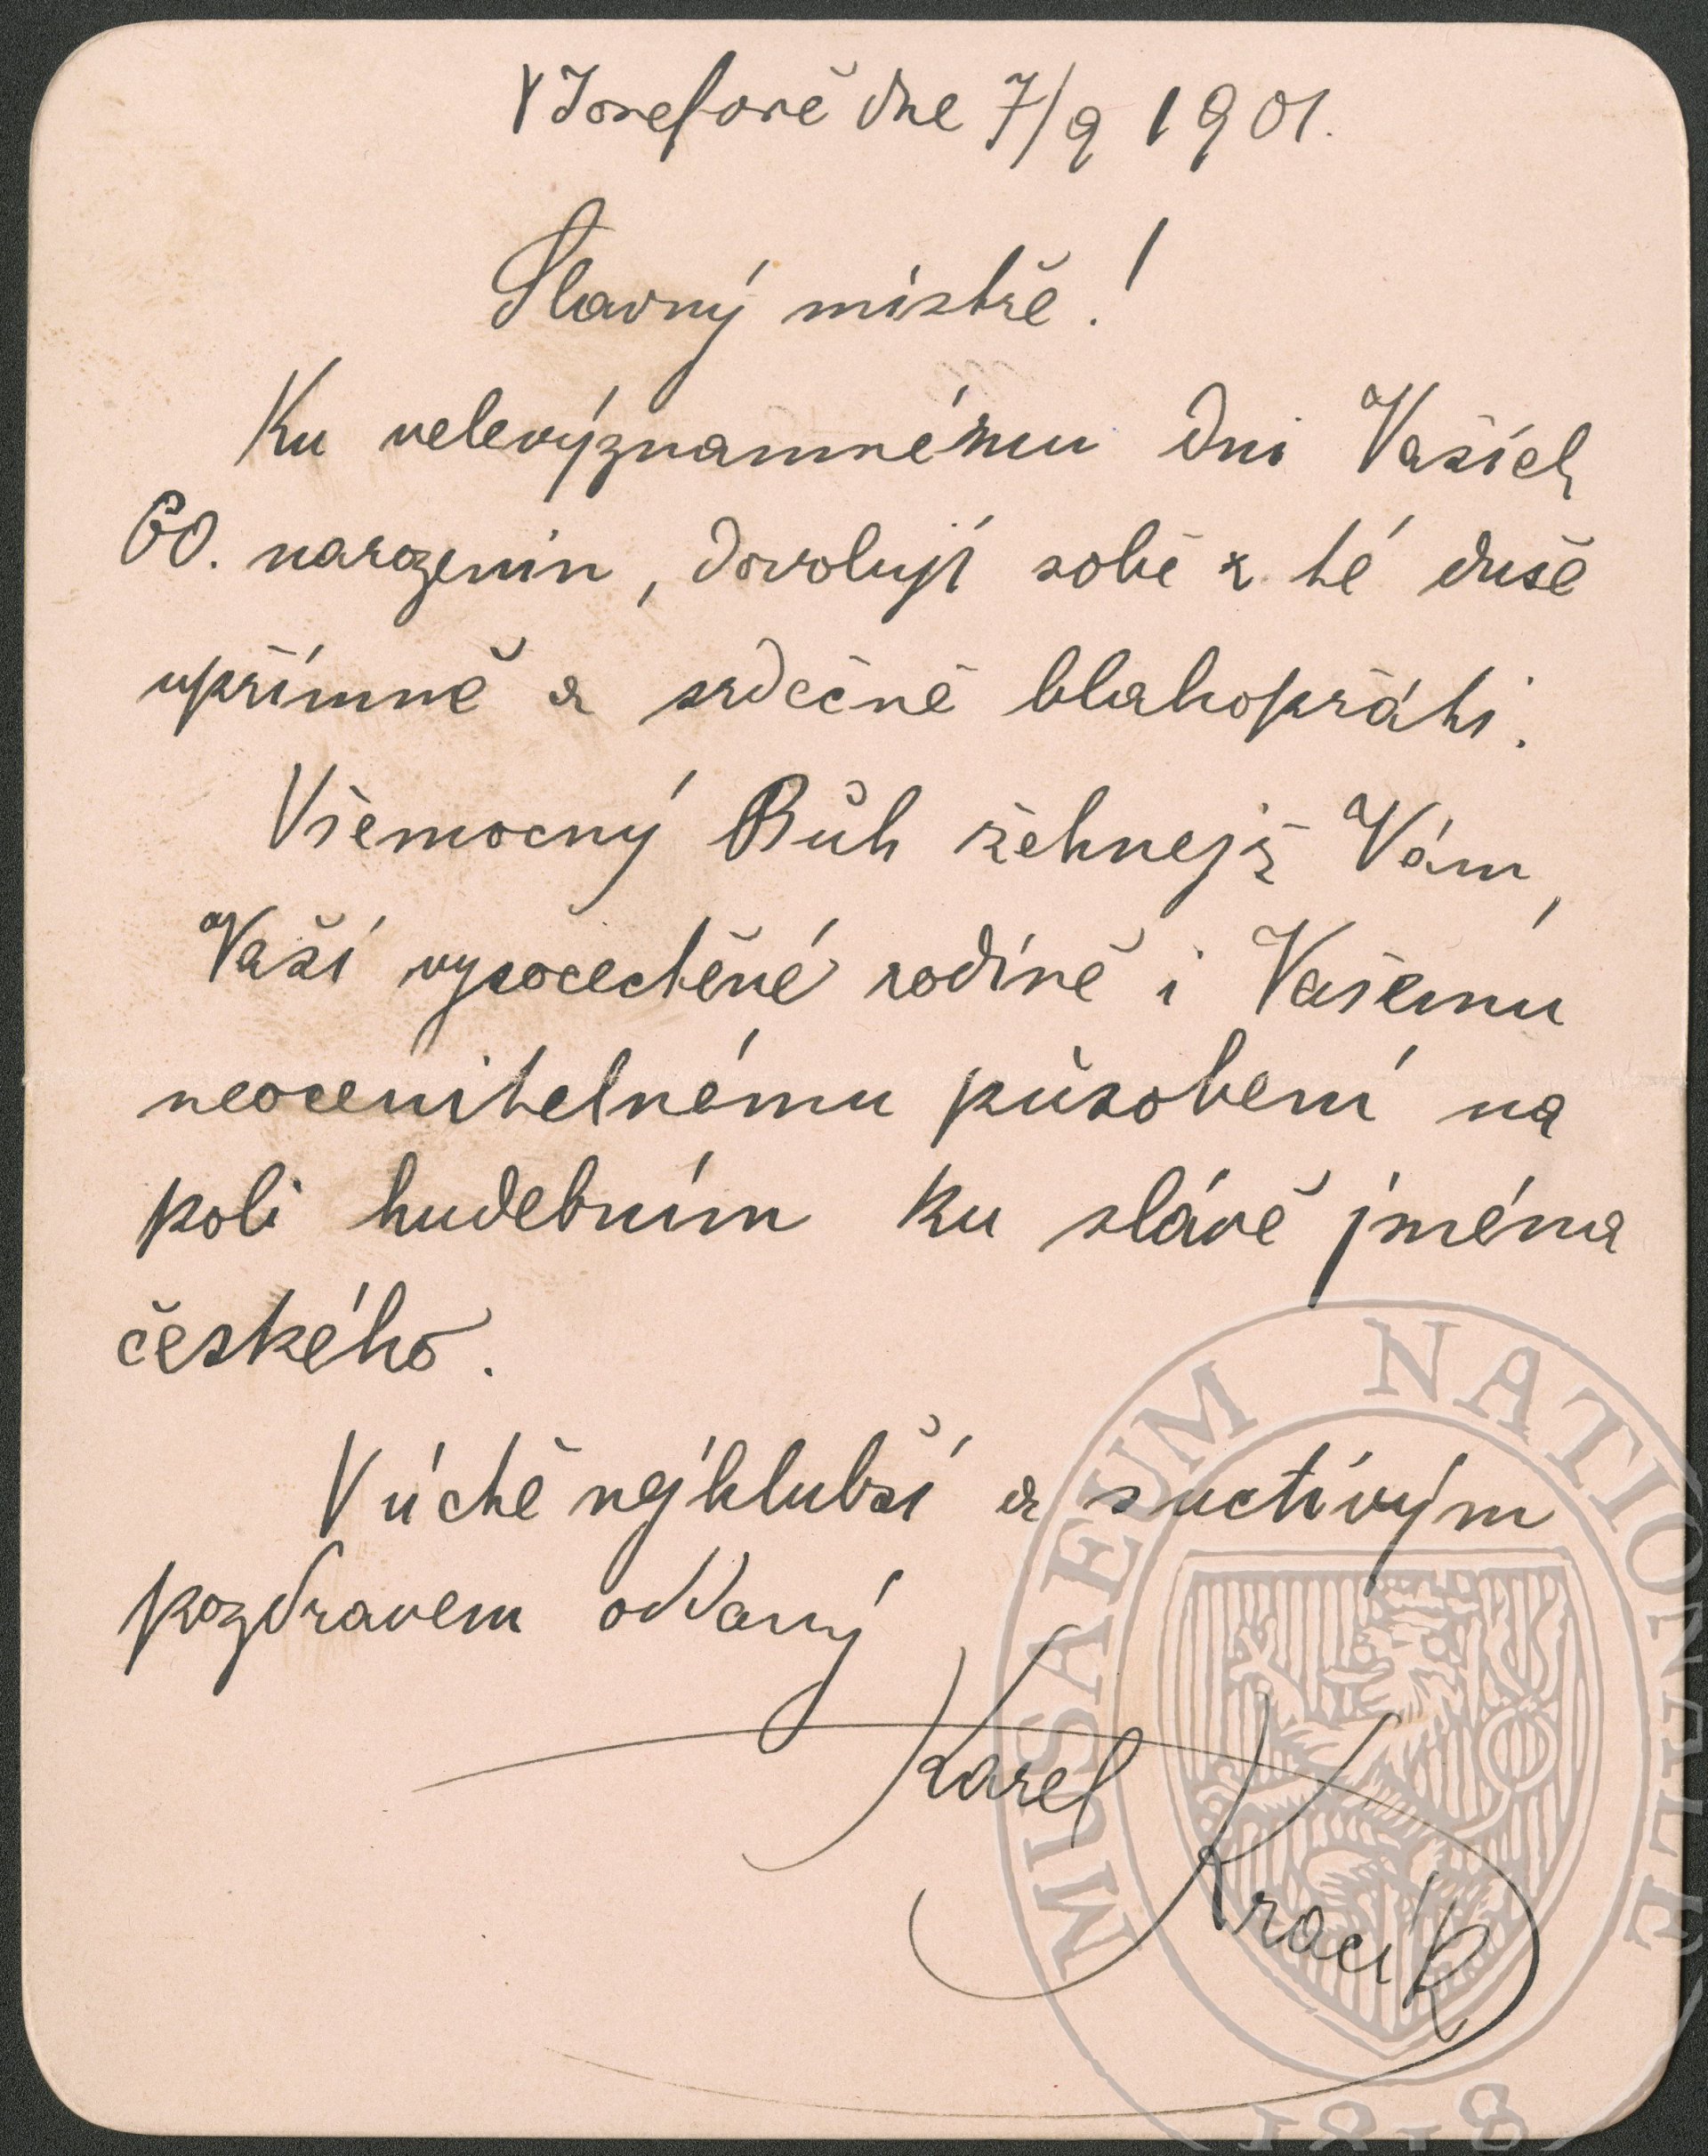 V Josefově dne 7/9 1901.
Slavný mistře!
Ku velevýznamnému dni Vašich
60. narozenin, dovoluji sobě z té duše
upřímně a srdečně blahopřáti.
Všemocný Bůh žehnejž Vám,
Vaší vysocectěné rodině i Vašemu
neocenitelnému působení na
poli hudebním ku slávě jména
českého.
V úctě nejhlubší a s uctivým
pozdravem oddaný
Karel
Kracík
MUSAEUM NATIONALE
1818